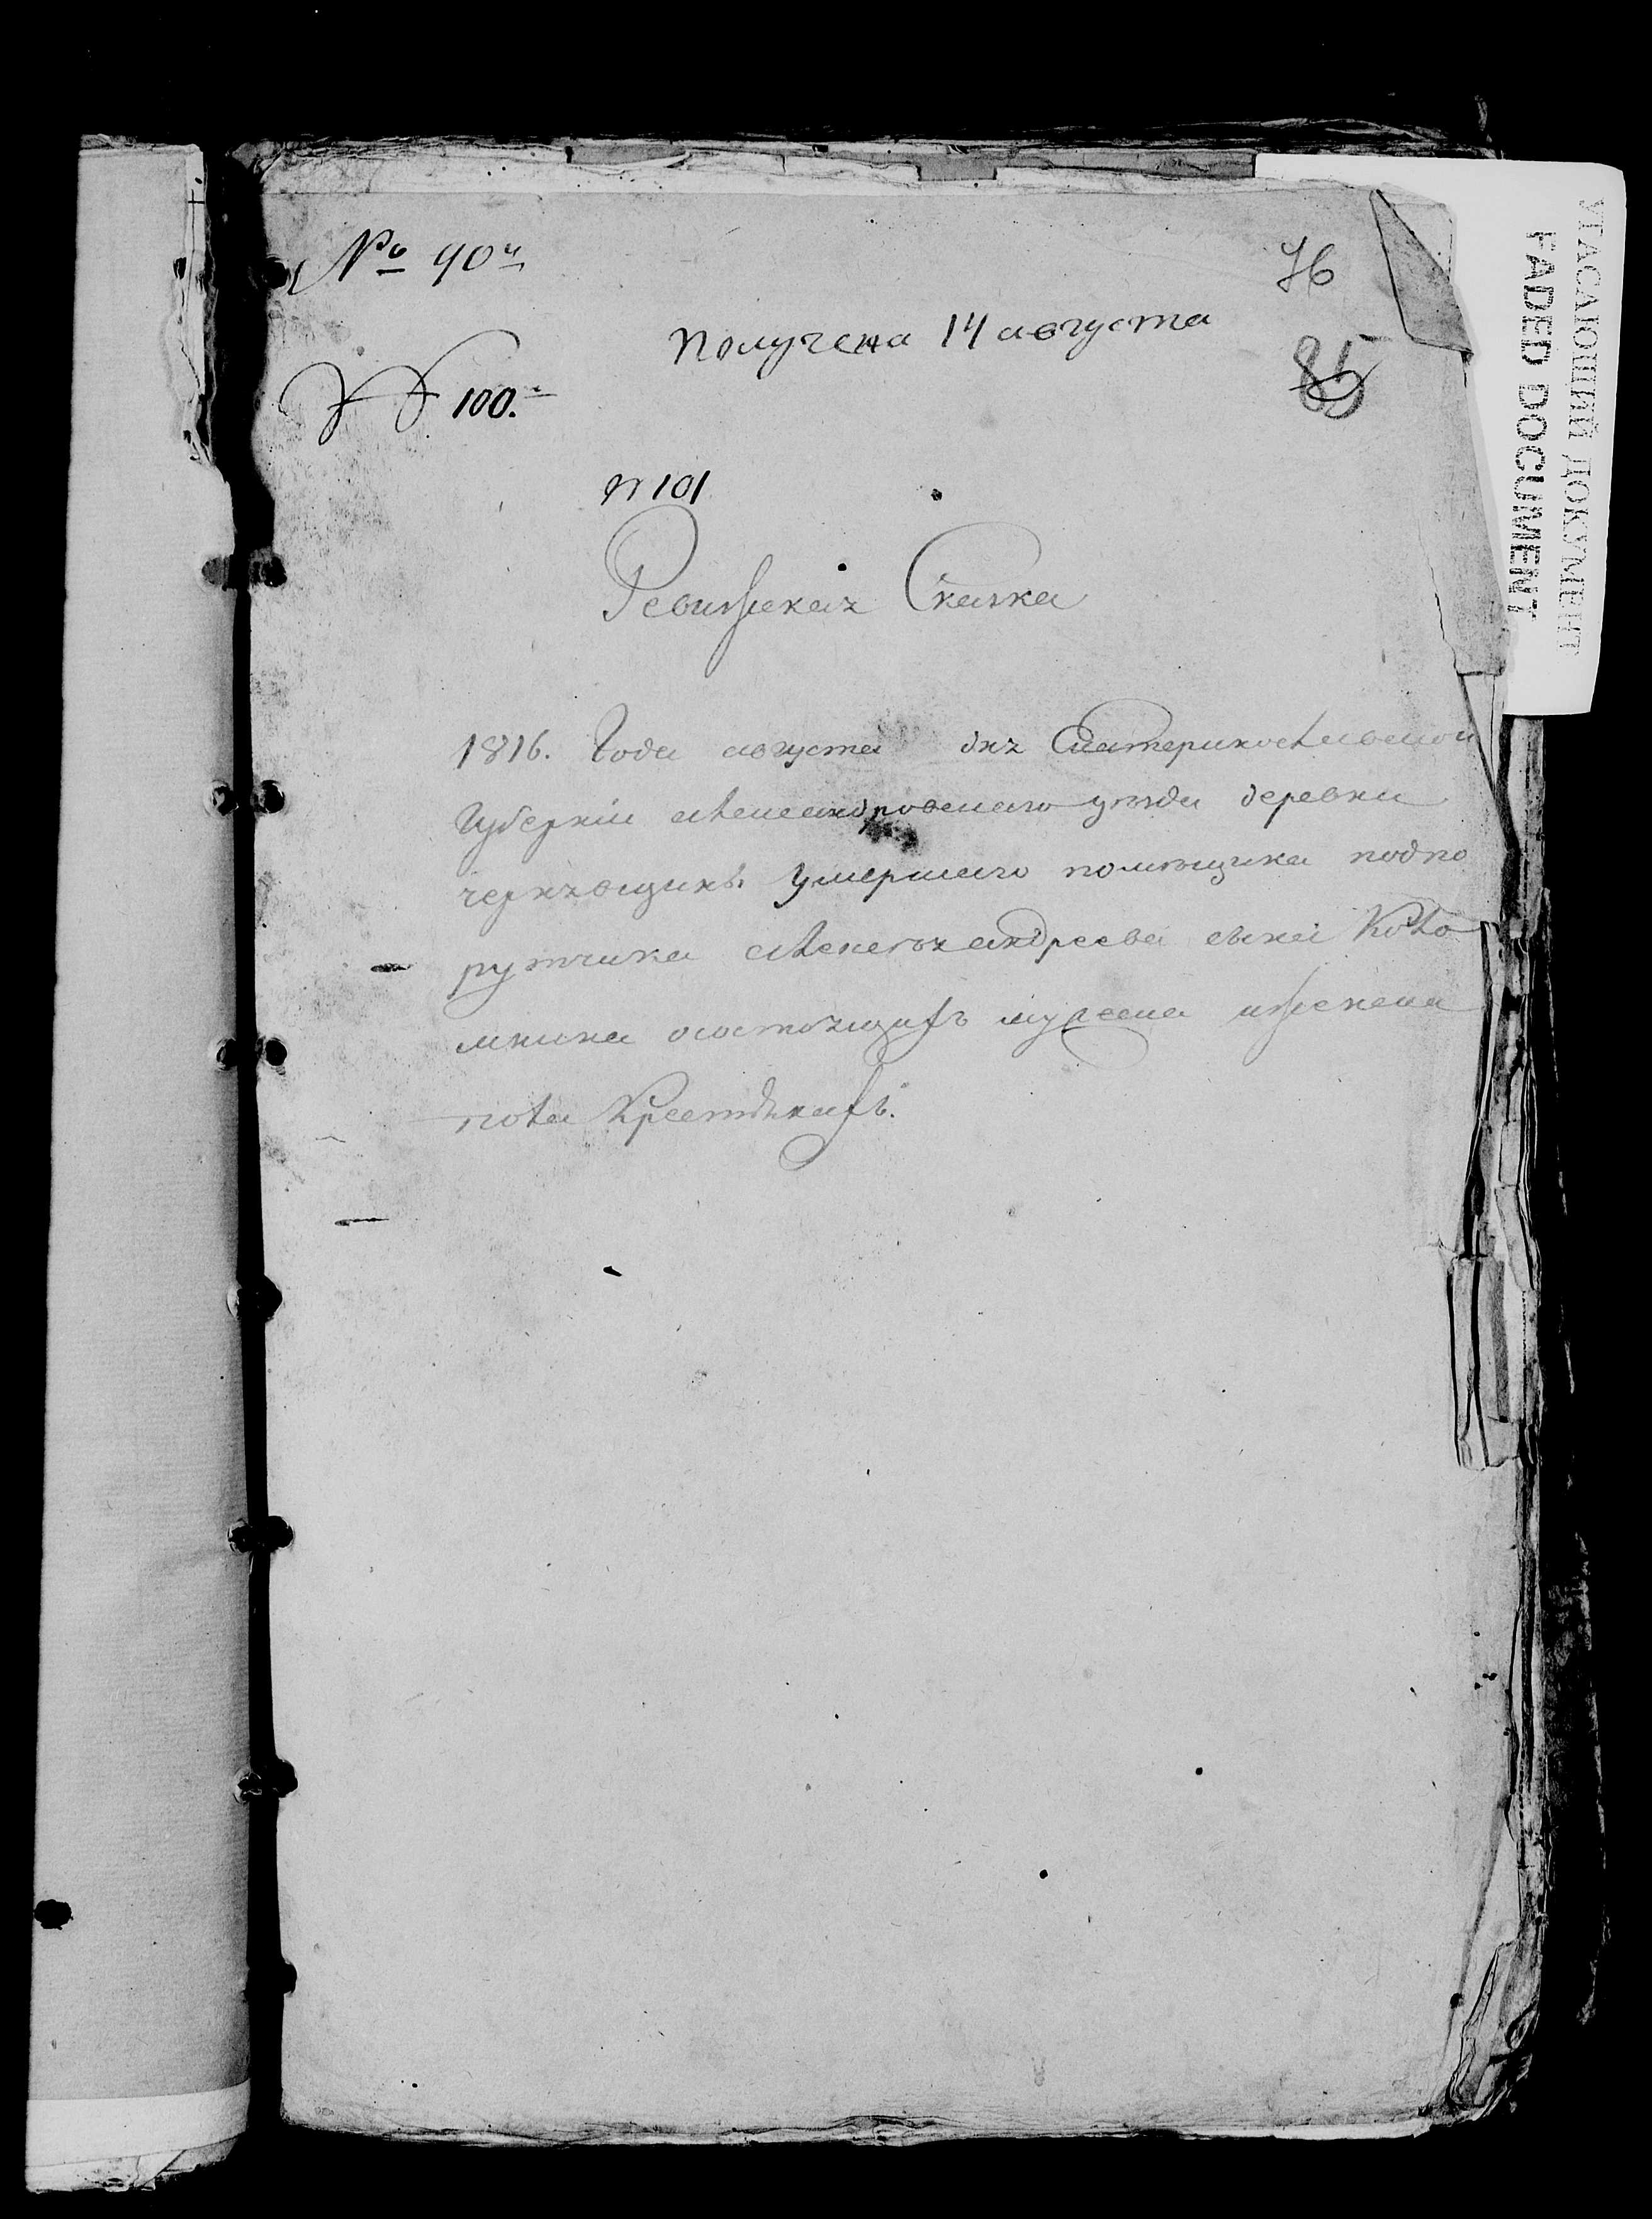 № 90й
76
Получена 14 августа
85
100.
№ 101
Ревизская Сказка
1816. Года августа дня Екатеринославской
Губернии александровского уезда деревни
умершаго помещика подпо
рутчика алексея андреева сына Коло
мника о состоящих мужеска и женска
пола Крестьянах.
УГАСАЮЩИЙ ДОКУМЕНТ
FADED DOCUMENT